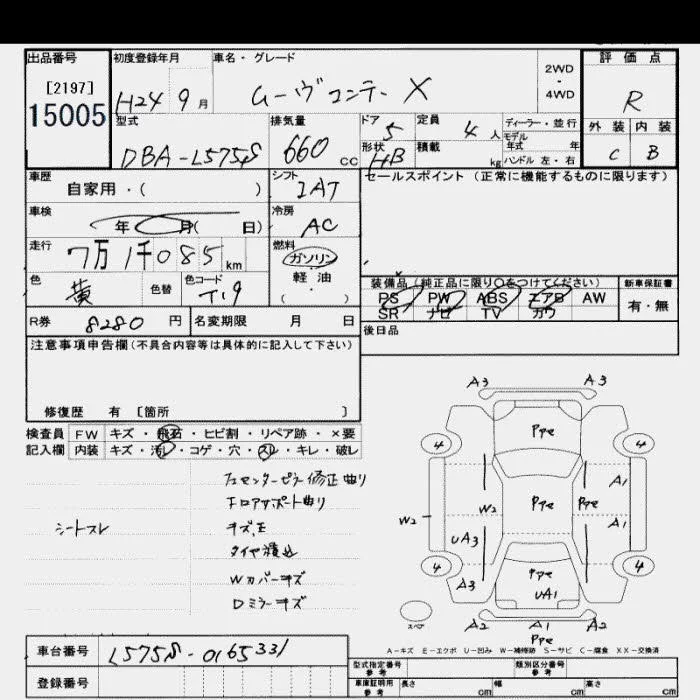 出品番号 初度登録年月 車名・グレード 2WD・4WD 評価点
[2197] H24 9月 ムーヴコンテ X R
15005 型式 排気量 ドア 定員 ディーラー・並行 外装 内装
DBA-L575S 660cc 5 4人 モデル年式 年 C B
形状 HB 積載 kg ハンドル 左・右
車歴 シフト セールスポイント (正常に機能するものに限ります)
自家用・( ) IAT
車検 年 月( 日) 冷房 AC
走行 7万1千085km 燃料 ガソリン
色 黄 色替 色コード T-9 軽油
( )
装備品(純正品に限り○をつけてください) 新車保証書
PS PW ABS エアB AW 有・無
SR ナビ TV カワ
R券 8280円 名変期限 月 日 後日品
注意事項申告欄(不具合内容等は具体的に記入して下さい)
修復歴 有 [箇所 ]
検査員 FW キズ・飛石・ヒビ割・リペア跡・×要
記入欄 内装 キズ・汚レ・コゲ・穴・スレ・キレ・破レ
修正曲り
曲り
シートスレ
タイヤ積込
Wカバーキズ
Dミラーキズ
A3 A3
PPe
4 4
A1
W2 PPe PPe
W2 A1
UA3
4 PPe 4
A3 UA1
スペア A2 A1 A2
PPe
A-キズ E-エクボ U-凹み W-補修跡 S-サビ C-腐食 XX-交換済
車台番号 L575S-0165331
型式指定番号 参考 類別区分番号 参考
登録番号 車庫証明用 参考 長さ cm 幅 cm 高さ cm